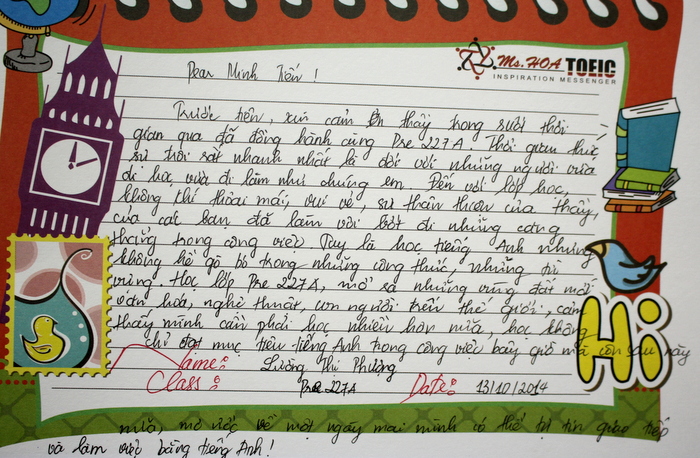 Ms. HOA TOEIC
INSPIRATION MESSENGER
Dear Minh Tiến !
Trước tiên, xin cảm ơn thầy trong suốt thời
gian qua đã đồng hành cùng Pre 227A. Thời gian thực
sự trôi rất nhanh nhất là đối với những người vừa
đi học, vừa đi làm như chúng em. Đến với lớp học,
không khí thoải mái, vui vẻ, sự thân thiện của thầy,
của các bạn đã làm vơi bớt đi những căng
thẳng trong công việc. Tuy là học tiếng Anh nhưng
không hề gò bó trong những công thức, những từ
vựng. Học lớp Pre 227A, mở ra những vùng đất mới
văn hóa, nghệ thuật, con người trên thế giới, cảm
thấy mình cần phải học nhiều hơn nữa, học không
chỉ đạt mục tiêu tiếng Anh trong công việc bây giờ mà còn sau này
Name: Lường Thị Phượng
Class: Pre 227A Date: 13/10/2014
Hi
nữa, mơ ước về một ngày mai mình có thể tự tin giao tiếp
và làm việc bằng tiếng Anh !